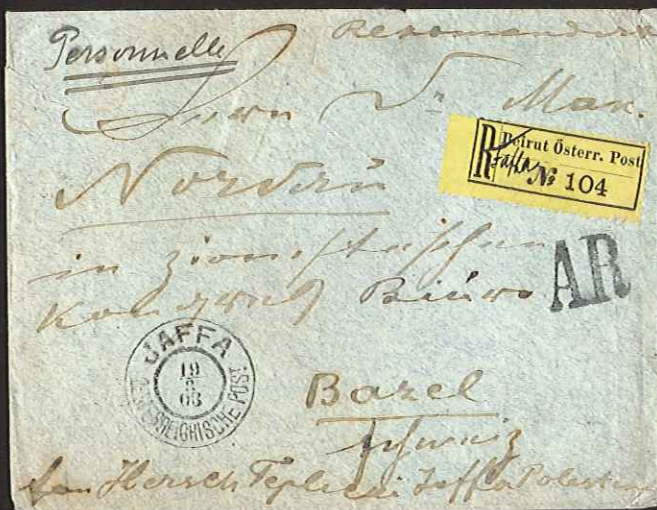 Personnelle Rekomandirt
Herrn Dr Max.
Nordau
R Beirut Österr. Post
Jaffa № 104
in zionistischen
Kongress Büro
AR
JAFFA
19
03
OESTERREICHISCHE POST
Basel
Schweiz
Hersch Jaffa Palestina